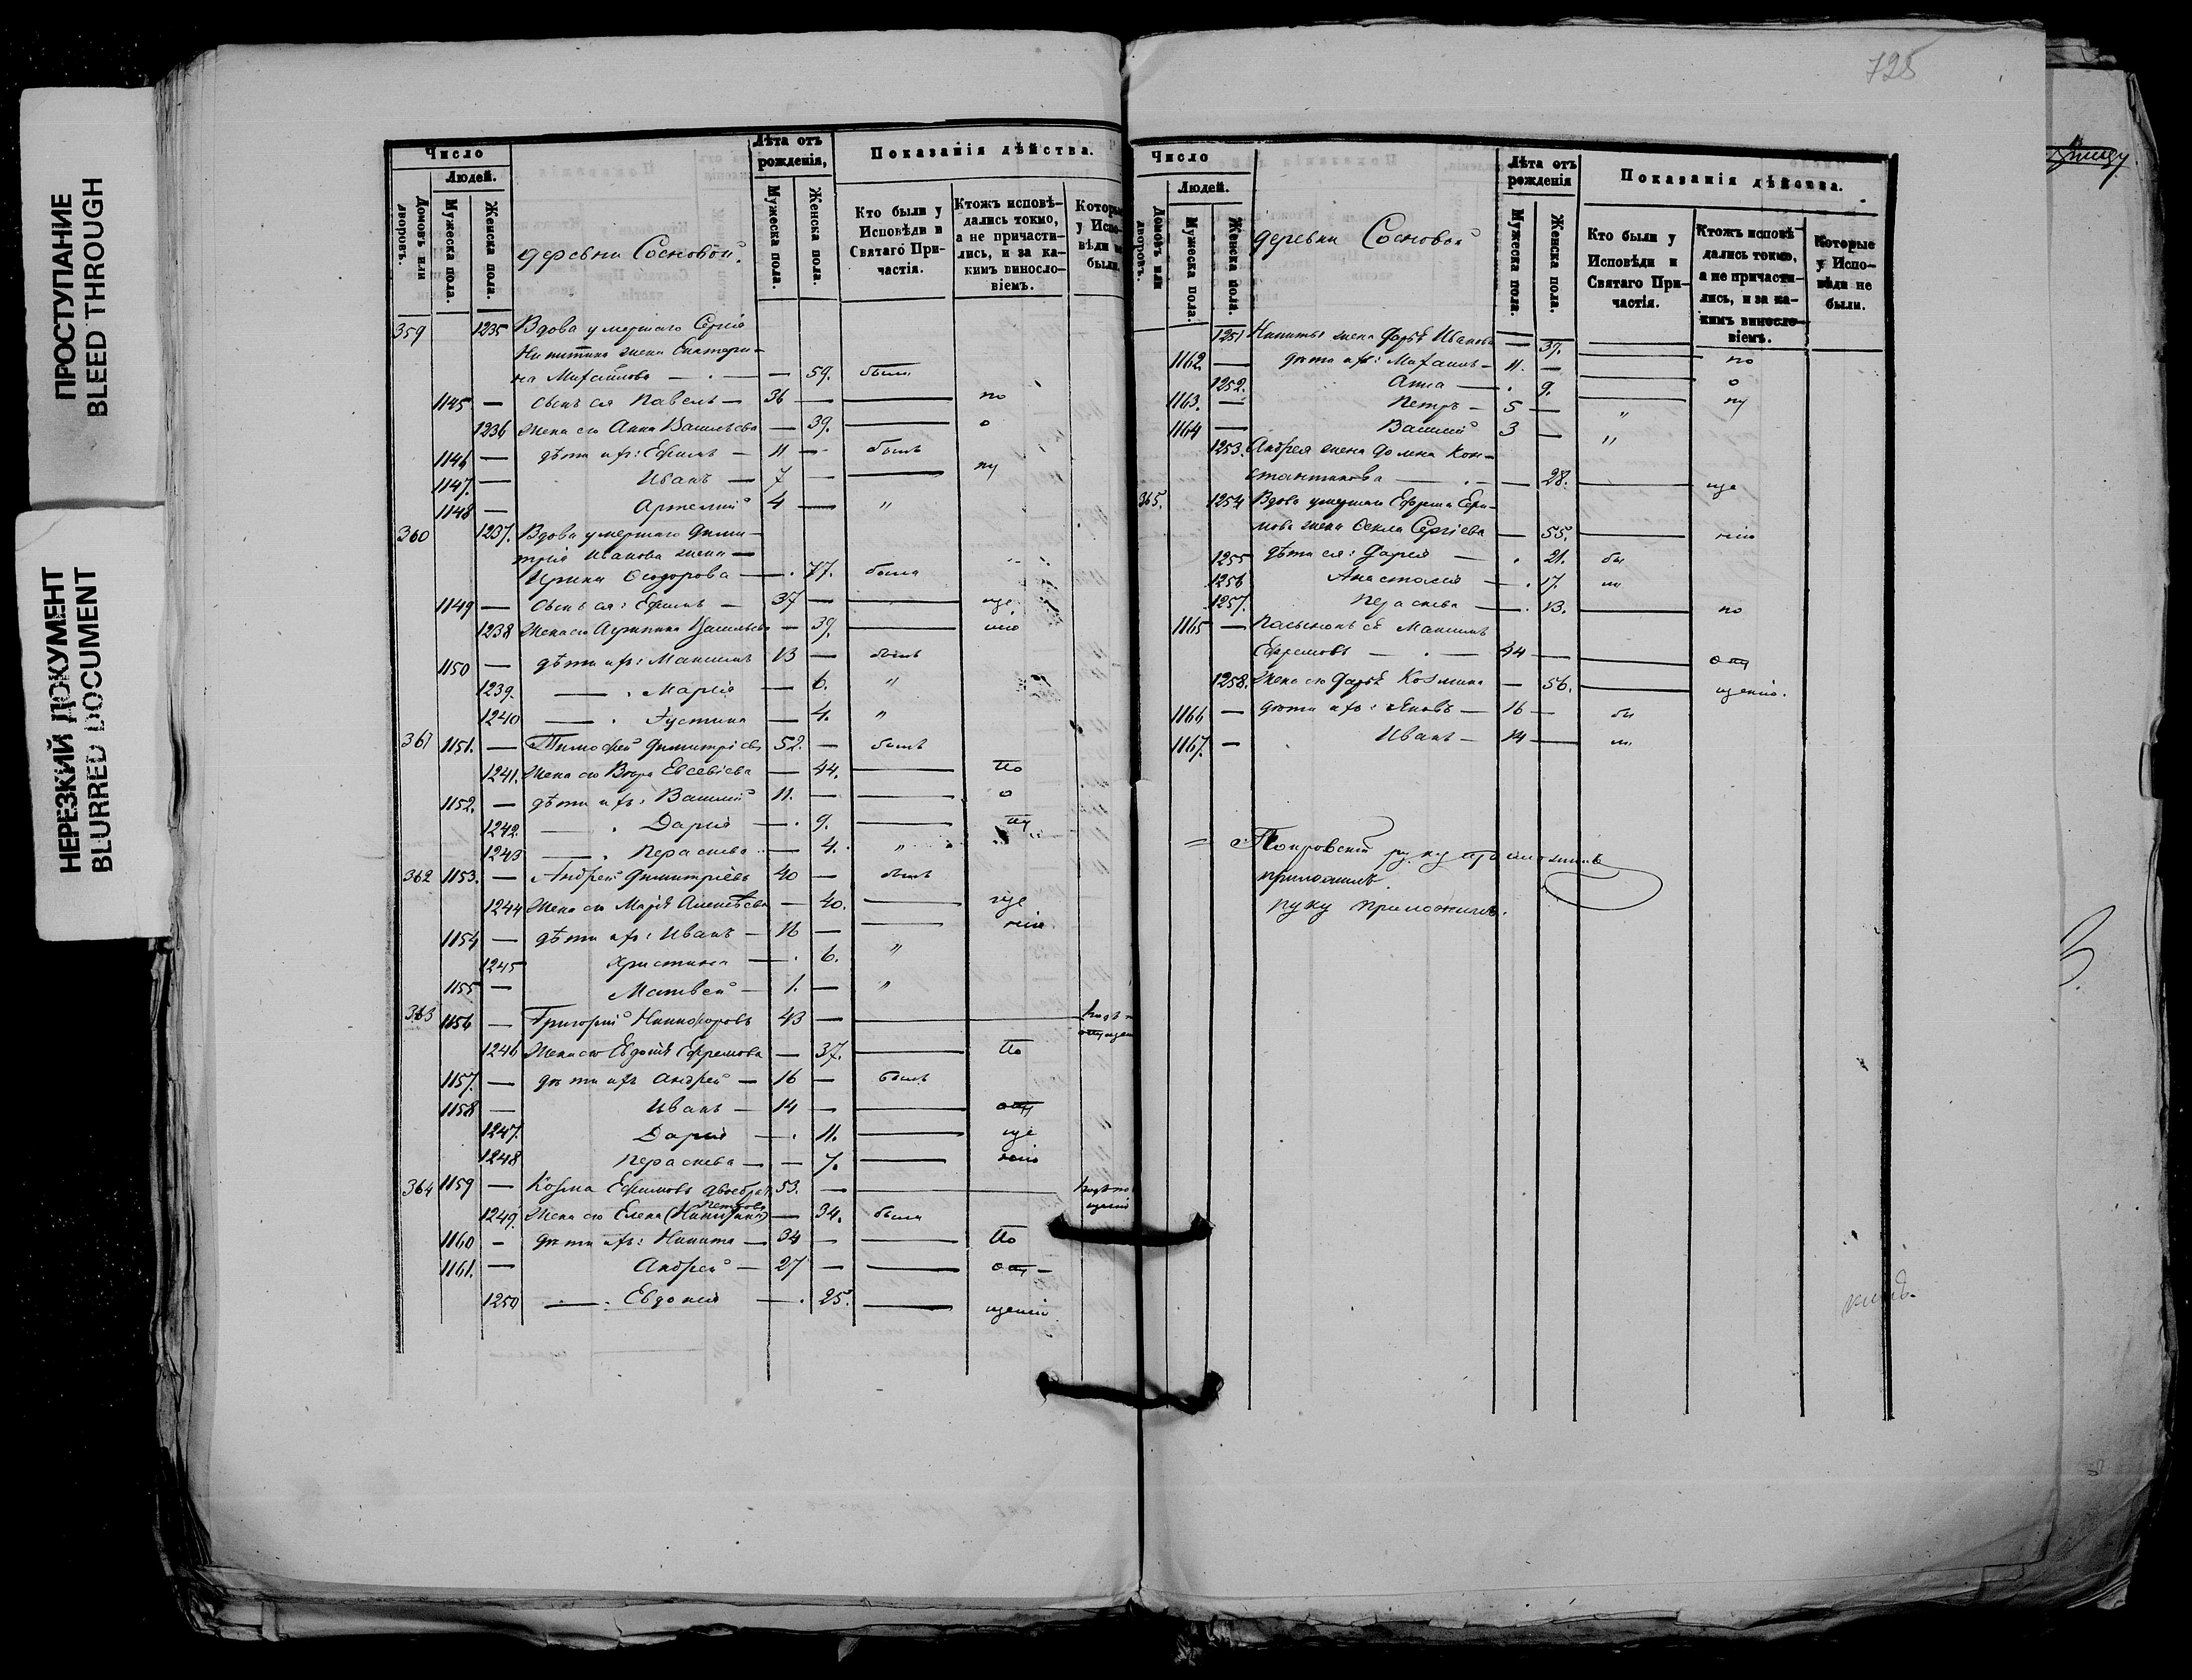 ПРОСТУПАНИЕ
BLEED THROUGH
НЕРЕЗКИЙ ДОКУМЕНТ
BLURRED DOCUMENT
Число
Людей.
Домовъ или дворовъ.
Мужеска пола.
Женска пола.
деревни Сосновой.
Лѣта отъ рожденія,
Мужеска пола.
Женска пола.
Показанія дѣйства.
Кто были у Исповѣди и Святаго Причастія.
Ктожъ исповѣдались токмо, а не причастились, и за какимъ винословіемъ.
Которые у Исповѣди не были.
359 1235 Вдова умершаго Сергія
Никитина жена Екатери-
на Михайлова — 59. была
1145 — сынъ ея Павелъ — 36 — по
1236 Жена его Анна Васильева — 39. о
1146 — дѣти ихъ: Ефимъ — 11 — былъ
1147. — Иванъ — 7 — пу
1148 — Артемий 4 — "
360 1237. Вдова умершаго Дими-
трія Иванова жена —
Ирина Ѳеодорова — 77. была
1149 — Сынъ ея: Ефимъ — 37 — ще
1238 Жена его Агрипина Васильева — 39. нію
1150 — дѣти ихъ: Максимъ 13 — былъ
1239. — Марія — 6. "
1240 — Iустина — 4. "
361 1151. — Тимоѳей Димитріевъ 52. — былъ
1241. Жена его Вѣра Евсевіева — 44. По
1152. — дѣти ихъ: Василій 11. — о
1242. — Дарія — 9. пу
1243 — Параскева — 4. "
362 1153. — Андрей Димитріевъ 40 — былъ
1244 Жена его Марія Алексѣева — 40. ще
1154 — дѣти ихъ: Иванъ — 16 — нію
1245 Христина — 6. "
1155 — Матвей — 1. — "
363 1156 — Григорій Никифоровъ 43 —
1246 Жена его Евдокія Ефремова — 37. По
1157. — дѣти ихъ Андрей — 16 — былъ
1158 — Иванъ — 14 — опу
1247. Дарія — 11. ще
1248 Параскева — 7. нію
364 1159 — Козма Ефимовъ 53. —
Петрова
1249. Жена его Елена (Никитина) — 34. была
1160 — дѣти ихъ: Никита — 34 — По
1161. — Андрей — 27 — опу-
1250 — Евдокія — 25. щенію
725
Число
Людей.
Домовъ или дворовъ.
Мужеска пола.
Женска пола.
деревни Сосновой
Лѣта отъ рожденія
Мужеска пола.
Женска пола.
Показанія дѣйства.
Кто были у Исповѣди и Святаго Причастія.
Ктожъ исповѣдались токмо, а не причастились, и за какимъ винословіемъ.
Которые у Исповѣди не были.
1251 Никиты жена Дарья Иванова — 37.
1162. дѣти ихъ: Михаилъ — 11. — по
1252. Анна — 9. о
1163. — Петръ — 5 — " пу
1164 — Василій 3 — "
1253. Андрея жена Домна Кон-
стантинова — 28. ще
365. 1254 Вдова умершаго Ефрема
жена Ѳекла Сергіева — 55. нію
1255 дѣти ея: Дарія — 21. бы
1256 Анастасія — 17. ли
1257. Параскева — 13. по
1165 — Пасынокъ ея Максимъ
Ефремовъ — 44 — опу
1258. Жена его Дарья Козмина — 56. щенію.
1166 — дѣти ихъ: Яковъ — 16 — бы
1167. — Иванъ — 14 — ли
Покровский руку приложилъ
приложилъ.
руку приложилъ.